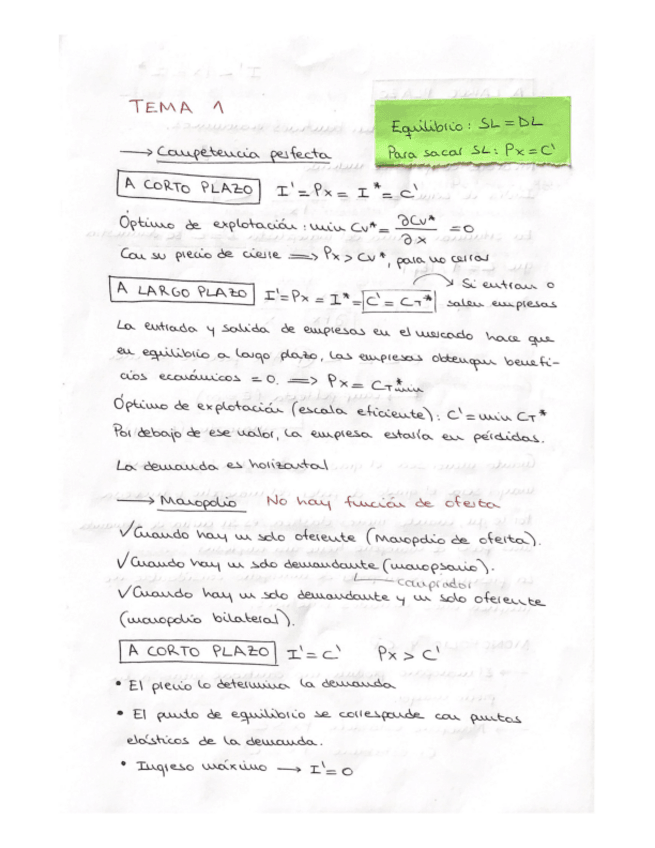 TEMA 1
Equilibrio: SL = DL
Para sacar SL: Px = C'
→ Competencia perfecta
A CORTO PLAZO I' = Px = I* = C'
Óptimo de explotación: min Cv* = ∂Cv*/∂x = 0
Con su precio de cierre ⇒ Px > Cv*, para no cerrar
A LARGO PLAZO I' = Px = I* = C' = CT* → Si entran o
salen empresas
La entrada y salida de empresas en el mercado hace que
en equilibrio a largo plazo, las empresas obtengan benefi-
cios económicos = 0. ⇒ Px = CT* min
Óptimo de explotación (escala eficiente): C' = min CT*
Por debajo de ese valor, la empresa estaría en pérdidas.
La demanda es horizontal
→ Monopolio No hay función de oferta
✓ Cuando hay un solo oferente (Monopolio de oferta).
✓ Cuando hay un solo demandante (monopsonio).
comprador
✓ Cuando hay un solo demandante y un solo oferente
(monopolio bilateral).
A CORTO PLAZO I' = C' Px > C'
• El precio lo determina la demanda
• El punto de equilibrio se corresponde con puntos
elásticos de la demanda.
• Ingreso máximo → I' = 0